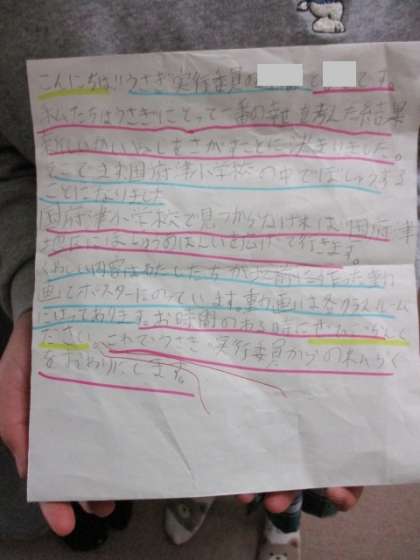 こんにちは!!うさぎ実行委員の と です。
私たちはうさぎにとって一番の幸せを考えた結果
新しいかいぬしをさがすことに決まりました。
そこでまず国府津小学校の中でぼしゅうする
ことになりました
国府津小学校で見つからなければ国府津
地区にぼしゅうのはんいを広げて行きます。
くわしい内容はわたしたちが 作った動
画とポスターにのっています。動画は各クラスルーム
にはってあります。お時間のある時にぜひごらんく
ださい。これでうさぎ実行委員からのれんらく
をおわりにします。